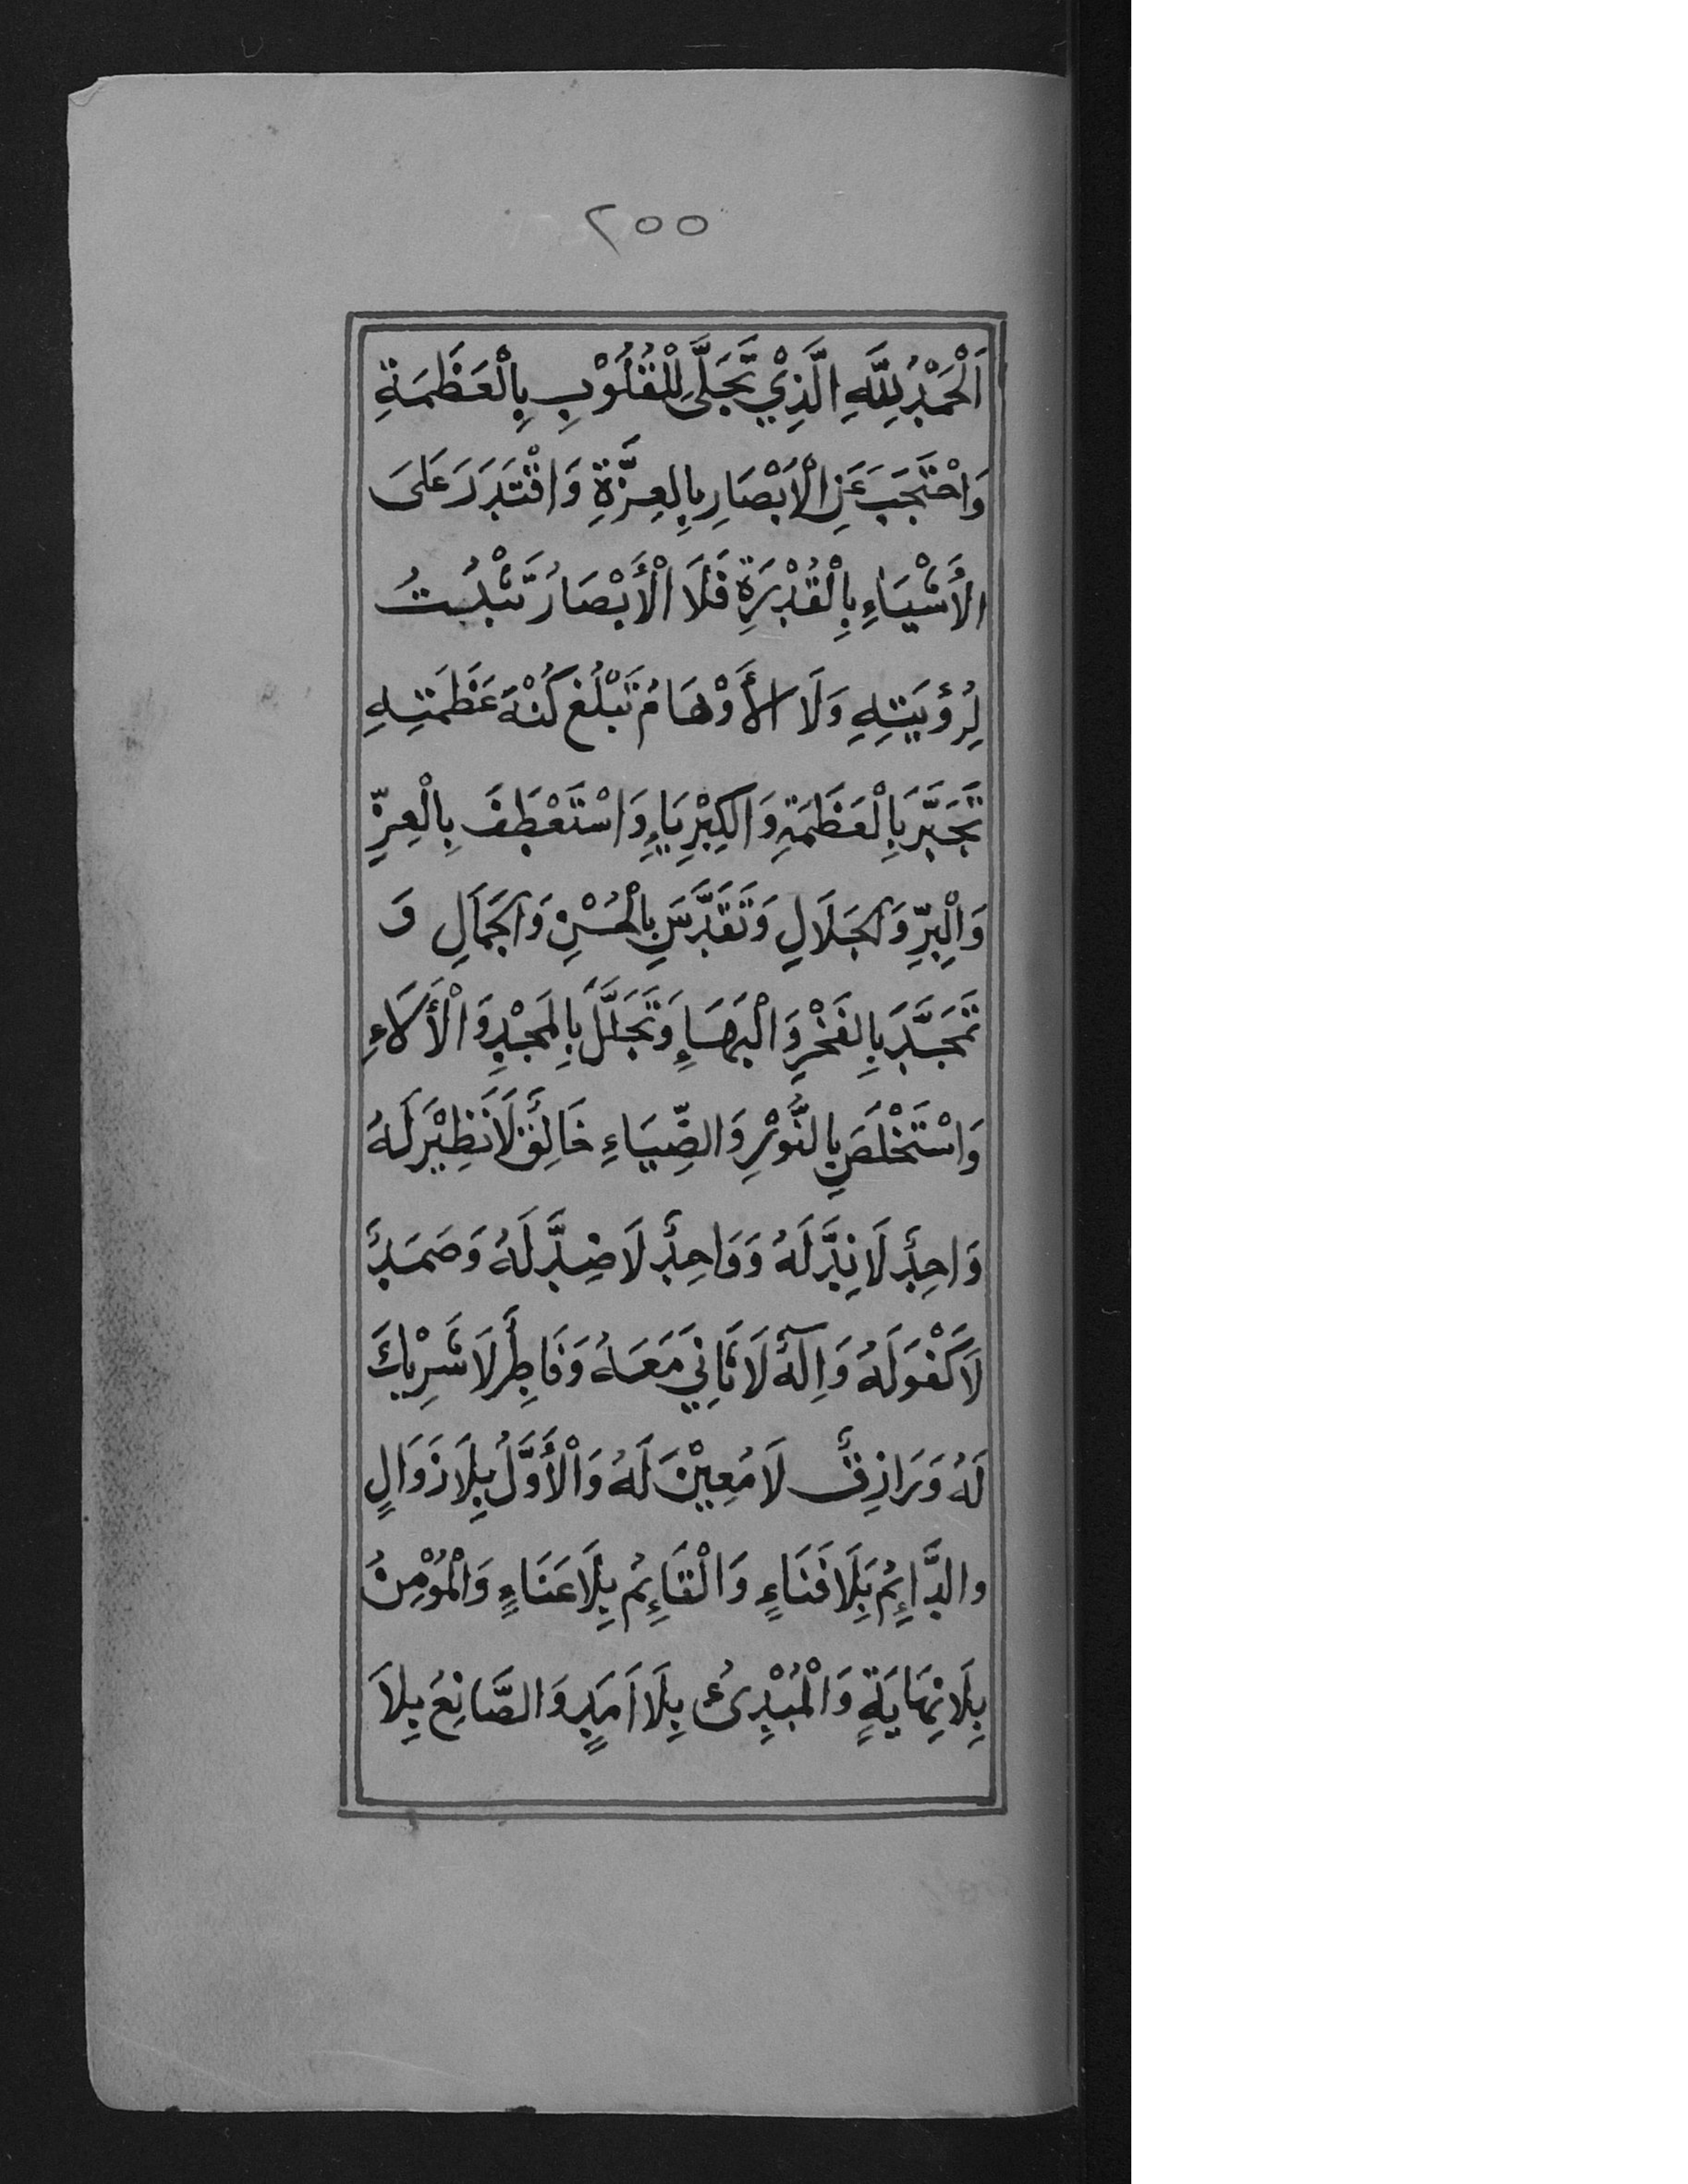 ٢٥٥
اَلْحَمْدُ لِلّٰهِ الَّذِيْ تَجَلَّى لِلْقُلُوْبِ بِالْعَظَمَةِ
وَاحْتَجَبَ عَنِ الْأَبْصَارِ بِالعِزَّةِ وَاقْتَدَرَ عَلىَ
الأَشْيَاءِ بِالْقُدْرَةِ فَلَا الْأَبْصَارُ تَثْبُتُ
لِرُؤيَتِهِ وَلَا الأَوْهَامُ تَبْلُغ كُنْهَ عَظَمَتِهِ
تَجَبَّرَ بِالْعَظَمَةِ وَالكِبْرِيَاءِ وَاسْتَعْطَفَ بِالْعِزِّ
وَالْبِرِّ وَالجَلَالِ وَتَقَدَّسَ بِالْحُسْنِ وَالجَمَالِ وَ
تَمَجَّدَ بِالفَخْرِ وَالْبَهَاءِ وَتَجَلَّلَ بِالمَجْدِ وَالْأَلَاءِ
وَاسْتَخْلَصَ بِالنُّوْرِ وَالضِّيَاءِ خَالِقٌ لَا نَظِيْرَ لَهُ
وَاحِدٌ لَا نِدَّ لَهُ وَوَاحِدٌ لَا ضِدَّ لَهُ وَصَمَدٌ
لَا كَفْوَ لَهُ وَاِلٰهٌ لَا ثَانِيَ مَعَهُ وَفَاطِرٌ لَا شَرِيْكَ
لَهُ وَرَازِقٌ لَا مُعِيْنَ لَهُ وَالْأَوَّلُ بِلَا زَوَالٍ
والدَّائِمُ بِلَا فَنَاءٍ وَالْقَائِمُ بِلَا عَنَاءٍ وَالْمُؤْمِنُ
بِلَا نِهَايَةٍ وَالْمُبْدِئُ بِلَا اَمَدٍ وَالصَّانِعُ بِلَا